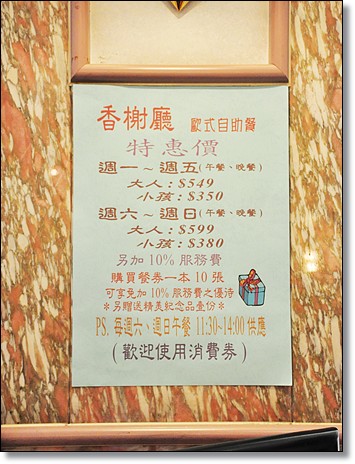 香榭廳 歐式自助餐
特惠價
週一～週五(午餐、晚餐)
大人:$549
小孩:$350
週六～週日(午餐、晚餐)
大人:$599
小孩:$380
另加10%服務費
購買餐券一本10張
可享免加10%服務費之優待
*另贈送精美紀念品壹份*
PS.每週六、週日午餐 11:30~14:00供應
(歡迎使用消費券)